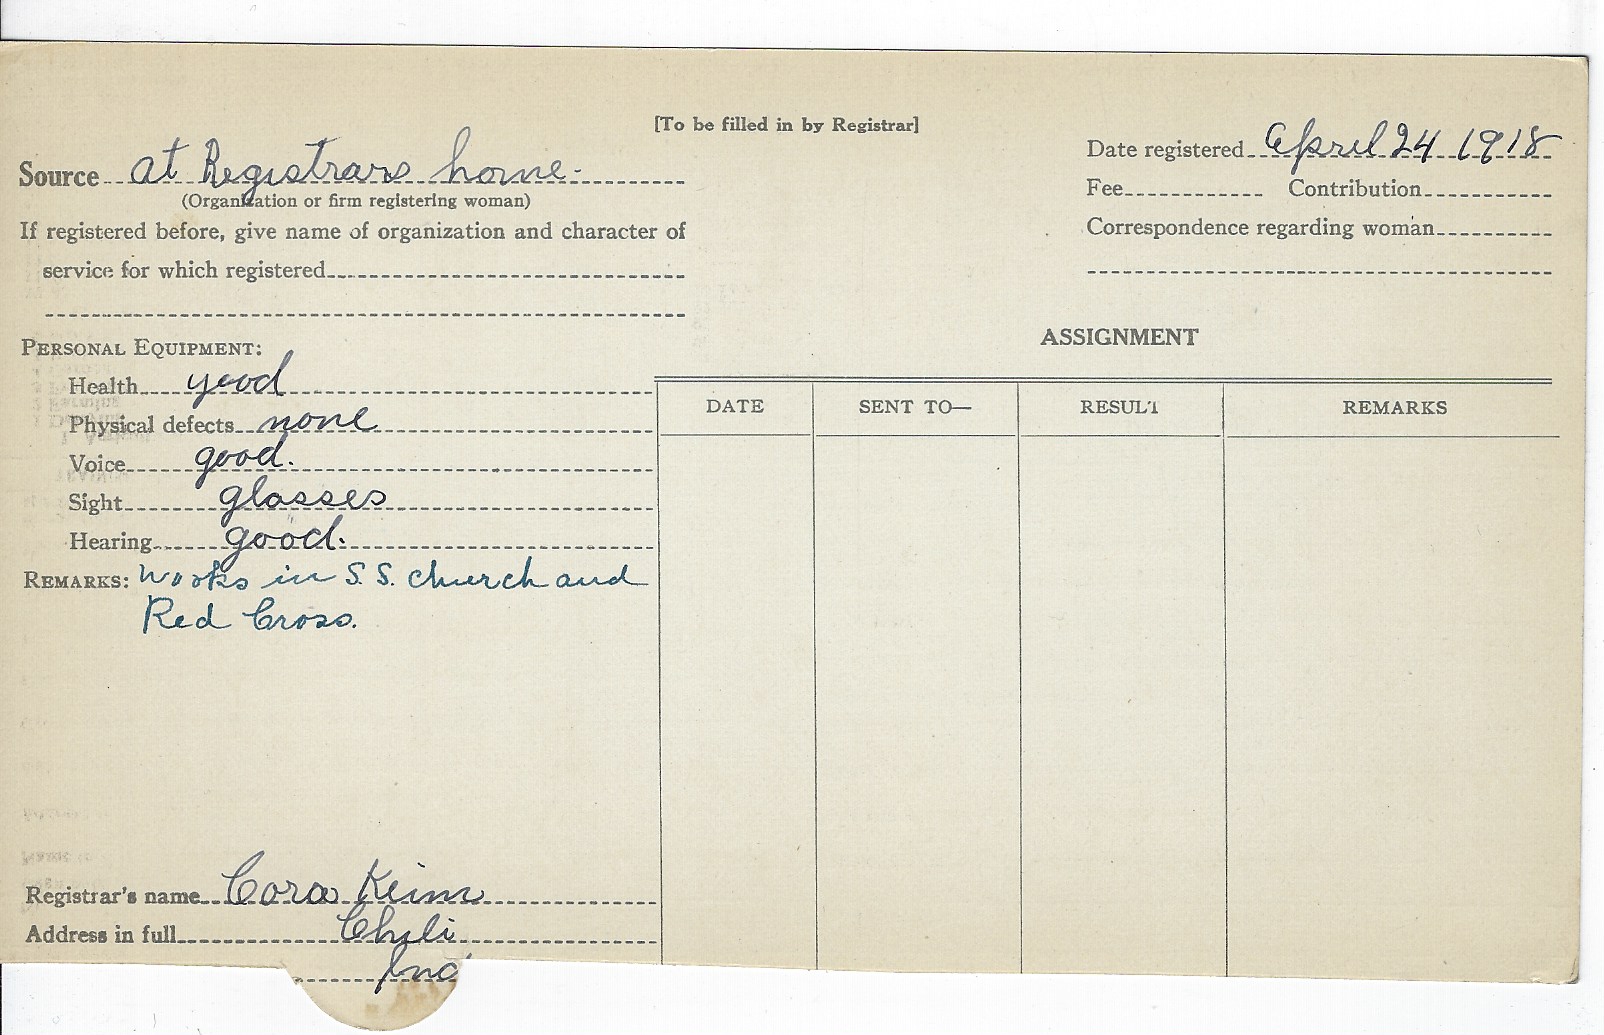 [To be filled in by Registrar]
Source at Registrars home.
(Organization or firm registering woman)
If registered before, give name of organization and character of
service for which registered
Date registered April 24 1918
Fee Contribution
Correspondence regarding woman
PERSONAL EQUIPMENT:
Health good
Physical defects none
Voice good.
Sight glasses
Hearing good.
REMARKS: Works in S.S. church and
Red Cross.
ASSIGNMENT
DATE SENT TO— RESULT REMARKS
Registrar's name Cora Keim
Address in full Chili
Ind